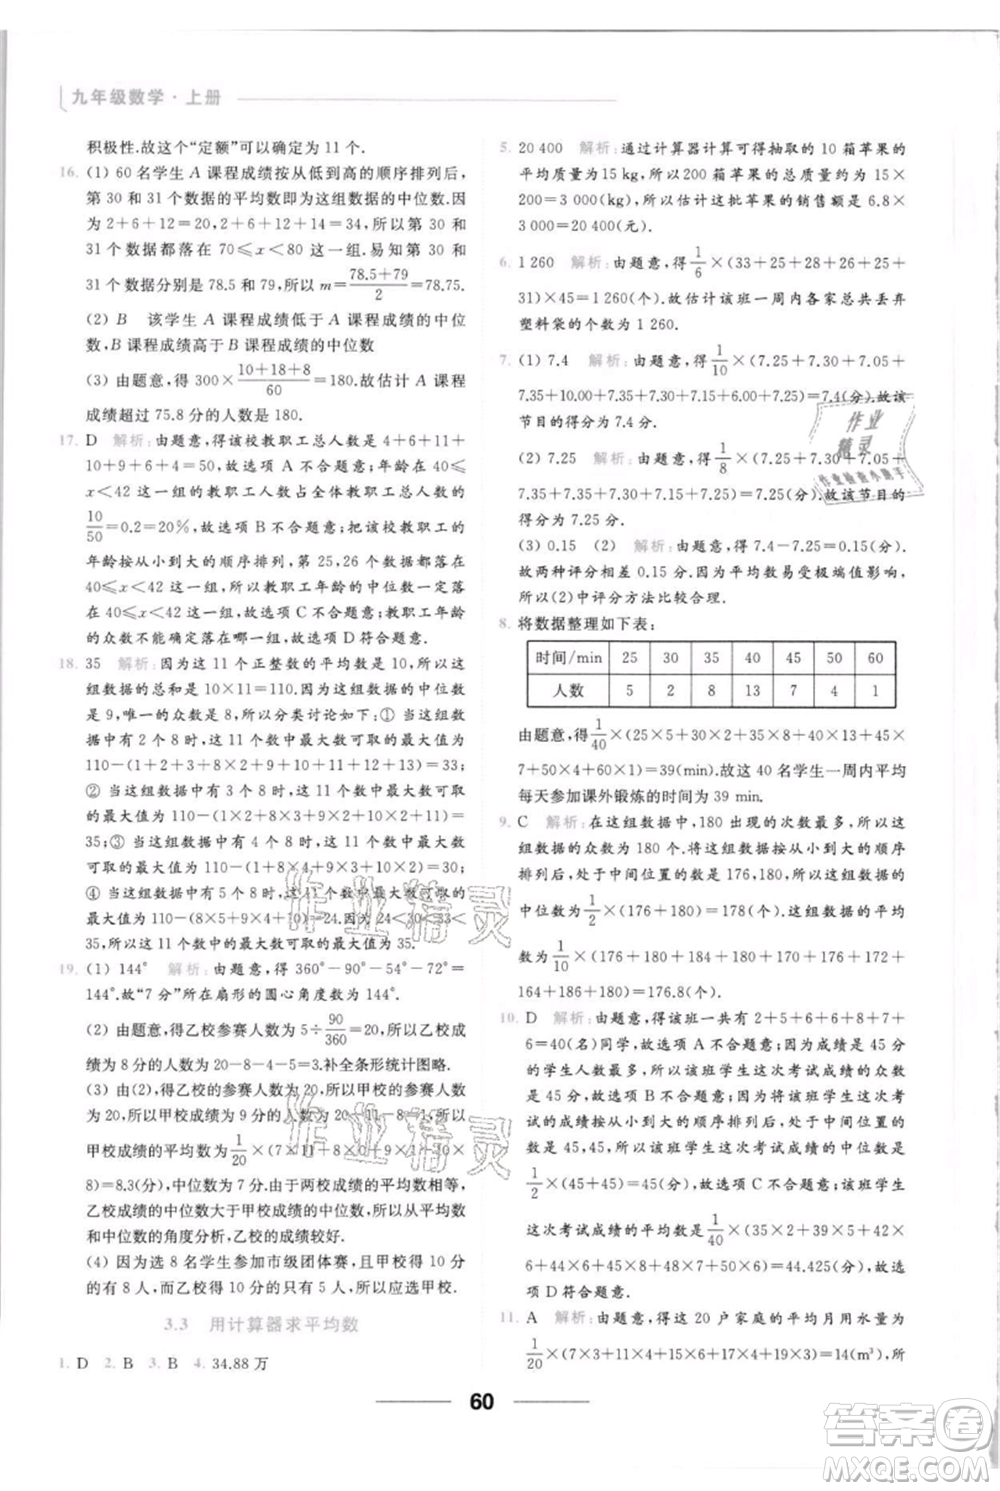 九年级数学·上册
积极性.故这个“定额”可以确定为 11 个.
16. (1) 60 名学生 A 课程成绩按从低到高的顺序排列后,第
30 和 31 个数据的平均数即为这组数据的中位数.因为
2+6+12=20,2+6+12+14=34,所以第 30 和第
31 个数据都落在 70≤x<80 这一组.易知第 30 和第
31 个数据分别是 78.5 和 79,所以 m=(78.5+79)/2=78.75.
(2) B 该学生 A 课程成绩低于 A 课程成绩的中位
数,B 课程成绩高于 B 课程成绩的中位数
(3) 由题意,得 300×(10+18+8)/60=180.故估计 A 课程
成绩超过 75.8 分的人数是 180.
17. D 解析:由题意,得该校教职工总人数是 4+6+11+
10+9+6+4=50,故选项 A 不合题意;年龄在 40≤
x<42 这一组的教职工人数占全体教职工总人数的
10/50=0.2=20%,故选项 B 不合题意;把该校教职工的
年龄按从小到大的顺序排列,第 25,26 个数据都落在
40≤x<42 这一组,所以教职工年龄的中位数一定落在
40≤x<42 这一组,故选项 C 不合题意;教职工年龄
的众数不能确定落在哪一组,故选项 D 符合题意.
18. 35 解析:因为这 11 个正整数的平均数是 10,所以这
组数据的总和是 10×11=110.因为这组数据的中位数
是 9,唯一的众数是 8,所以分类讨论如下:① 当这组数
据中有 2 个 8 时,这 11 个数中最大数可取的最大值为
110-(1+2+3+8×2+9+10+11+12+13)=33;
② 当这组数据中有 3 个 8 时,这 11 个数中最大数可取
的最大值为 110-(1×2+8×3+9×2+10×2+11)=
35;③ 当这组数据中有 4 个 8 时,这 11 个数中最大数可
取的最大值为 110-(1+8×4+9×3+10×2)=30;
④ 当这组数据中有 5 个 8 时,这 11 个数中最大数可取的
最大值为 110-(8×5+9×4+10)=24.因为 24<30<33<
35,所以这 11 个数中最大数可取的最大值为 35.
19. (1) 144° 解析:由题意,得 360°-90°-54°-72°=
144°.故“7 分”所在扇形的圆心角度数为 144°.
(2) 由题意,得乙校参赛人数为 5÷90/360=20,所以乙校成
绩为 8 分的人数为 20-8-4-5=3.补全条形统计图略.
(3) 由(2),得乙校的参赛人数为 20.因为两校参赛人数相
等,所以甲校成绩为 9 分的人数为 20-11-8=1,所以
甲校成绩的平均数为 1/20×(7×11+8×0+9×1+10×
8)=8.3(分),中位数为 7 分.由于两校平均数相等,乙校
成绩的中位数大于甲校成绩的中位数,所以从平均数
和中位数的角度分析,乙校的成绩较好.
(4) 因为选 8 名学生参加市级团体赛,甲校得 10 分
的有 8 人,而乙校得 10 分的只有 5 人,所以应选甲校.
3.3 用计算器求平均数
1. D 2. B 3. B 4. 34.88 万
5. 20 400 解析:通过计算器计算可得抽取的 10 箱苹果的
平均质量为 15 kg,所以这批苹果的总质量约是 15×
200=3 000(kg),所以估计这批苹果的销售额为 6.8×
3 000=20 400(元).
6. 1 260 解析:由题意,得 1/6×(33+25+28+26+25+
31)×45=1 260(个).故估计该班一周内各家总共丢弃
塑料袋的个数为 1 260.
7. (1) 7.4 解析:由题意,得 1/10×(7.25+7.30+7.05+
7.35+10.00+7.35+7.30+7.00+6.00+7.40)=7.4(分).故该
节目的得分为 7.4 分.
(2) 7.25 解析:由题意,得 1/8×(7.25+7.30+7.05+
7.35+7.35+7.30+7.00+7.40)=7.25(分).故该节目的
得分为 7.25 分.
(3) 0.15 (2) 解析:由题意,得 7.4-7.25=0.15(分).
故两种评分相差 0.15 分.因为平均数易受极端值影响,
所以(2)中评分方法比较合理.
8. 将数据整理如下表:
时间/min 25 30 35 40 45 50 60
人数 5 2 8 7 13 4 1
由题意,得 1/40×(25×5+30×2+35×8+40×
7+45×13+50×4+60×1)=39(min).故这 40 名学生一周内平均
每天参加课外锻炼的时间为 39 min.
9. C 解析:在这组数据中,180 出现的次数最多,所以这
组数据的众数为 180 个.将这组数据按从小到大的顺序
排列后,处于中间位置的数据是 176,180,所以这组数据的
中位数为 1/2×(176+180)=178(个).这组数据的平均
数为 1/10×(176+180+184+180+170+176+172+
164+186+180)=176.8(个).
10. D 解析:由题意,得该班一共有 2+5+6+6+8+7
+6=40(名)同学,故选项 A 不合题意;得 45 分
的学生人数最多,所以该班学生这次考试成绩的众数
是 45 分,故选项 B 不合题意;将该班学生这次考试成
绩按从小到大的顺序排列后,处于中间位置的成绩都
是 45 分,所以该班学生这次考试成绩的中位数是
1/2×(45+45)=45(分),故选项 C 不合题意;该班学生
这次考试成绩的平均数是 1/40×(35×2+39×5+42×
6+44×6+45×8+48×7+50×6)=44.425(分),故选
项 D 符合题意.
11. A 解析:由题意,得 20 户家庭的平均月用水量为
1/20×(7×3+9×4+11×8+15×3+20×2)=11.5(m³),所以
60
作业精灵
作业检查小助手
作业精灵
作业精灵
答案圈
MXQE.COM